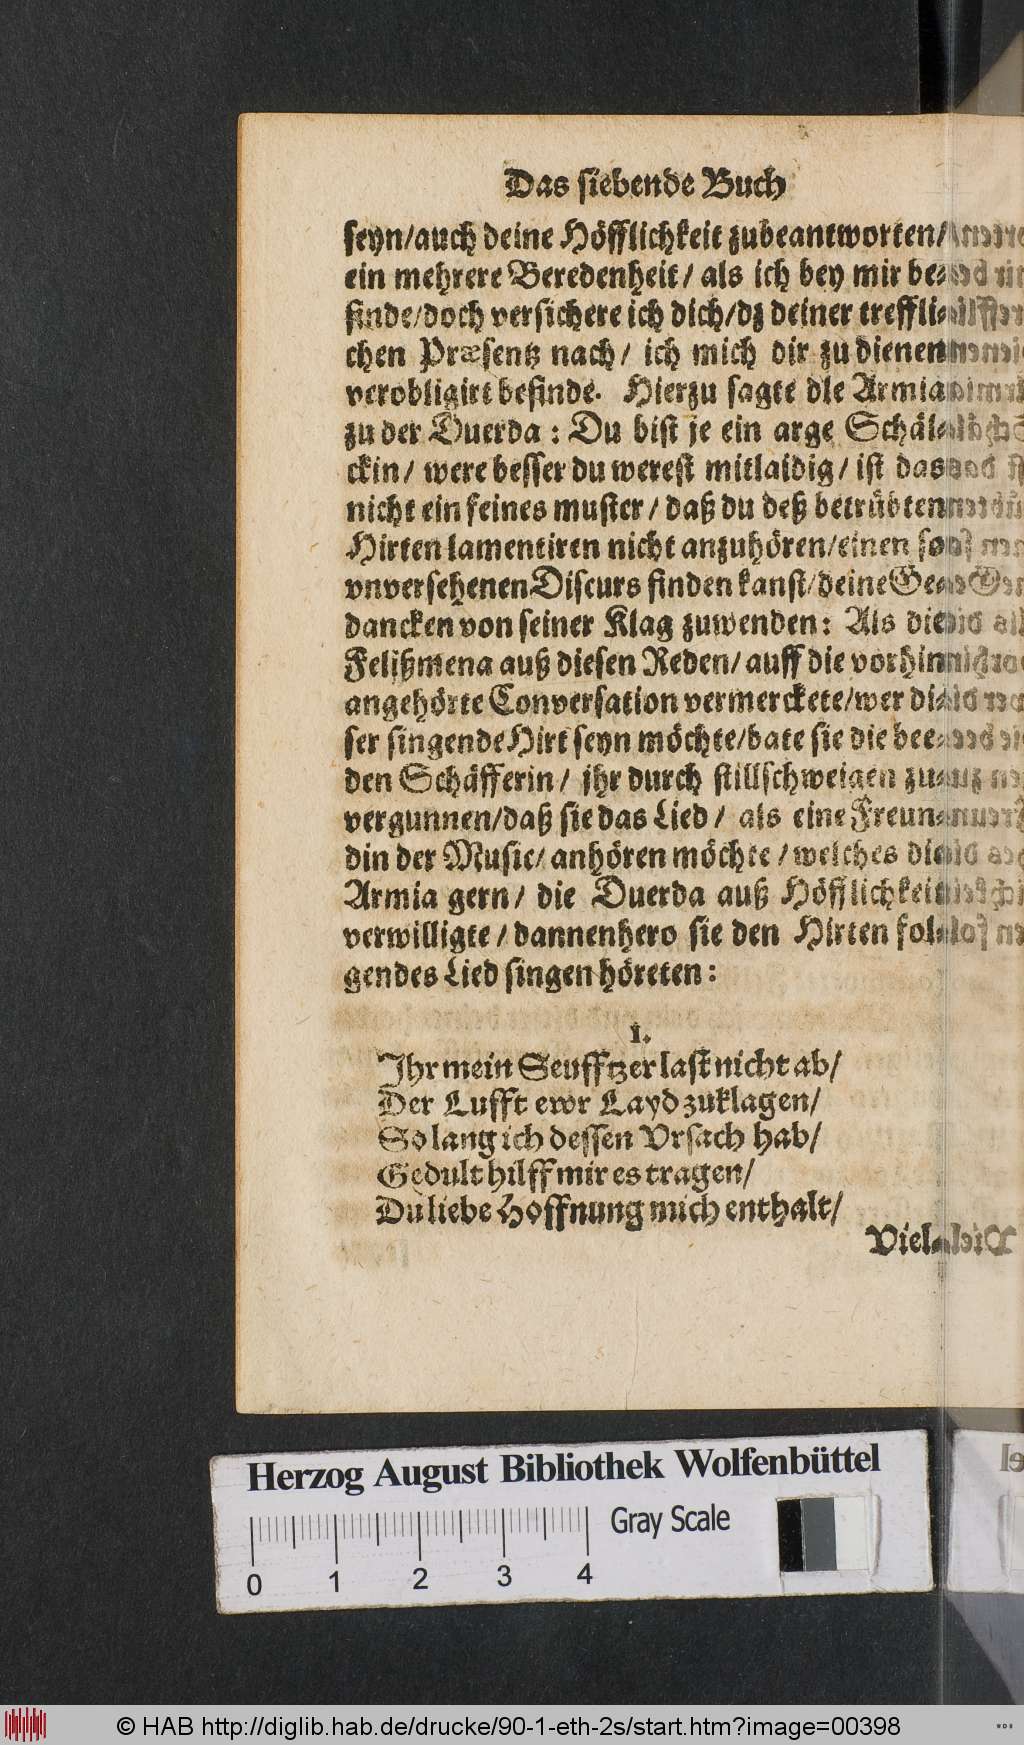 Das siebende Buch
seyn/auch deine Höfflichkeit zubeantworten/
ein mehrere Beredenheit/ als ich bey mir be-
finde/doch versichere ich dich/dz deiner treffli-
chen Præsentz nach/ ich mich dir zu dienen
verobligirt befinde. Hierzu sagte die Armia
zu der Duerda: Du bist je ein arge Schäl-
ckin/ were besser du werest mitlaidig/ ist das
nicht ein feines muster/ daß du deß betrübten
Hirten lamentiren nicht anzuhören/einen so
vnversehenen Discurs finden kanst/deine Ge-
dancken von seiner Klag zuwenden: Als die
Felißmena auß diesen Reden/ auff die vorhin
angehörte Conversation vermerckete/wer di-
ser singende Hirt seyn möchte/bate sie die bee-
den Schäfferin/ jhr durch stillschweigen zu
vergunnen/daß sie das Lied/ als eine Freun-
din der Music/ anhören möchte/welches die
Armia gern/ die Duerda auß Höfflichkeit
verwilligte/dannenhero sie den Hirten fol-
gendes Lied singen höreten:
I.
Ihr mein Seufftzer last nicht ab/
Der Lufft ewr Layd zuklagen/
So lang ich dessen Vrsach hab/
Gedult hilff mir es tragen/
Du liebe Hoffnung mich enthalt/
Viel
Herzog August Bibliothek Wolfenbüttel
Gray Scale
0 1 2 3 4
© HAB http://diglib.hab.de/drucke/90-1-eth-2s/start.htm?image=00398